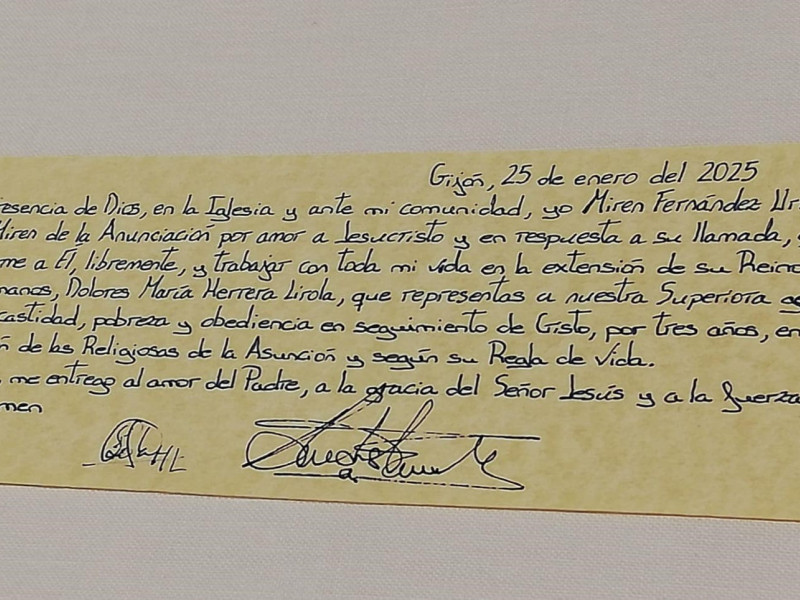 Gijón, 25 de enero del 2025
resencia de Dios, en la Iglesia y ante mi comunidad, yo Miren Fernández Ur
Miren de la Anunciación por amor a Jesucristo y en respuesta a su llamada,
me a Él, libremente, y trabajar con toda mi vida en la extensión de su Reino
manos, Dolores María Herrera Lirola, que representas a nuestra Superiora
castidad, pobreza y obediencia en seguimiento de Cristo, por tres años, en
n de las Religiosas de la Asunción y según su Regla de Vida.
me entrego al amor del Padre, a la gracia del Señor Jesús y a la fuerza
men